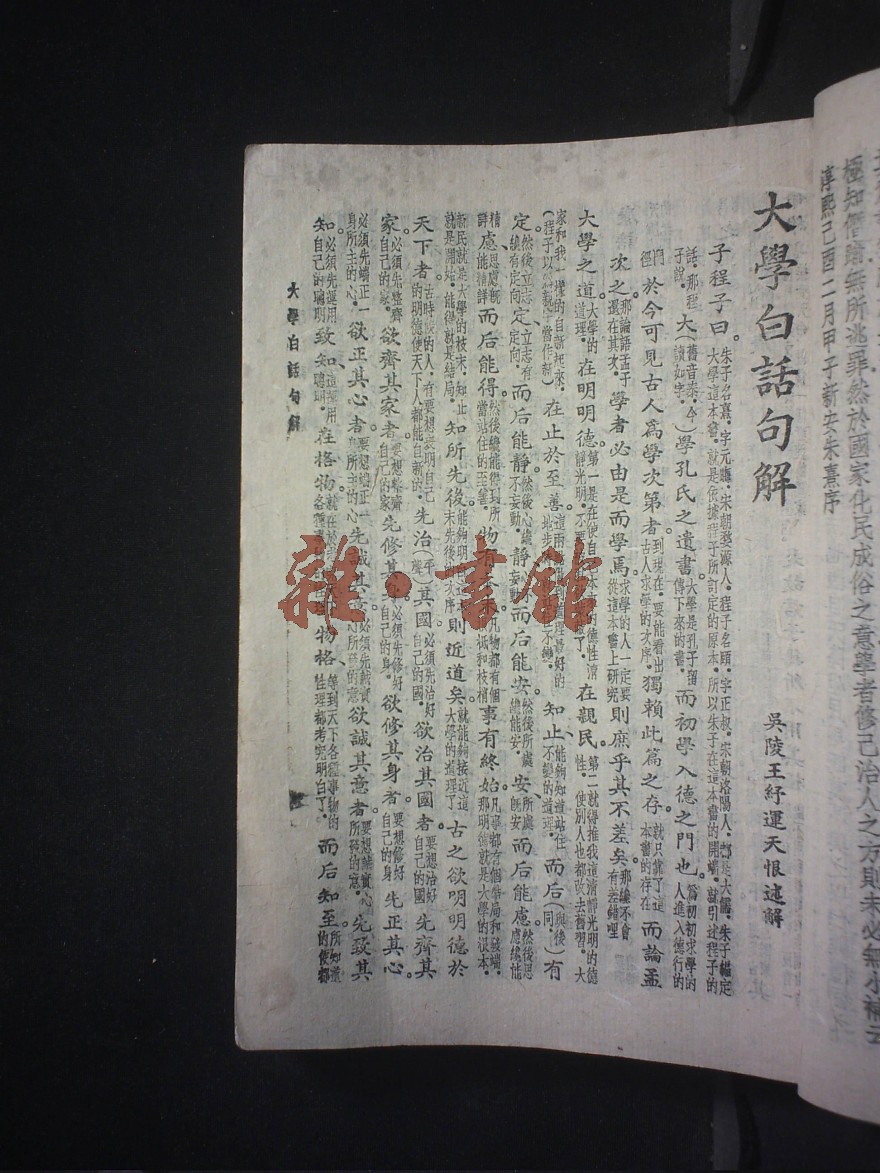 極知僭踰無所逃罪然於國家化民成俗之意學者修己治人之方則未必無小補云
淳熙己酉二月甲子新安朱熹序
大學白話句解
吳陵王紓運天恨述解
子程子曰。朱子名熹、字元晦、宋朝婺源人。程子名頤、字正叔、宋朝洛陽人、都是大儒。朱子編定大學這本書、就是依據程子所訂定的原本、所以朱子在這本書的開端、就引述程子的
話、那程子說。大(舊音泰、今讀如字。)學孔氏之遺書。大學是孔子留傳下來的書。而初學入德之門也。為初初求學的人進入德行的
門徑於今可見古人爲學次第者。到現在、要能看出古人求學的次序。獨賴此篇之存。就只靠了這本書的存在而論孟
次之。那論語孟子還在其次。學者必由是而學焉。求學的人一定要從這本書上研究則庶乎其不差矣。那纔不會有差錯哩
大學之道。大學的道理。在明明德。第一是在使自己本來的德性清靜光明、不要在親民。第二就得推我這清靜光明的德性、使別人也都改去舊習、大
家和我一樣的自新起來。(程子以爲親字當作新)在止於至善。知止能夠知道站住不變的道理。而后(與後同。)有
定。然後立志纔有定向。定立志有定向。而后能靜。然後心纔不妄動。靜而后能安。然後所處纔能安。安所處旣安而后能慮。然後思慮纔能
精詳慮思慮旣能精詳而后能得。然後纔能得到所當站住的至善。物有本末。凡物都有個根柢和枝梢事有終始。凡事都有個結局和發端。如那明德就是大學的根本、
新民就是大學的枝末、知止就是開始、能得就是結局。知所先後。則近道矣。就能夠接近這大學的道理了古之欲明明德於
天下者。古時候的人、有要想表明自己的明德使天下人都能自新的。先治(平聲)其國。必須先治好自己的國。欲治其國者。要想治好自己的國先齊其
家。必須先整齊自己的家。欲齊其家者。要想整齊自己的家先修其身。必須先修好自己的身。欲修其身者。要想修好自己的身先正其心。
必須先端正一身所主的心。欲正其心者。要想端正一身所主的心先誠其意。必須先誠實心所發的意欲誠其意者。要想誠實心所發的意。先致其
知。必須先運用自己的聰明致知、這運用聰明。在格物。物格、等到天下各種事物的性理都考究明白了。而后知至。所知道的便都
大學白話句解
雜·書館